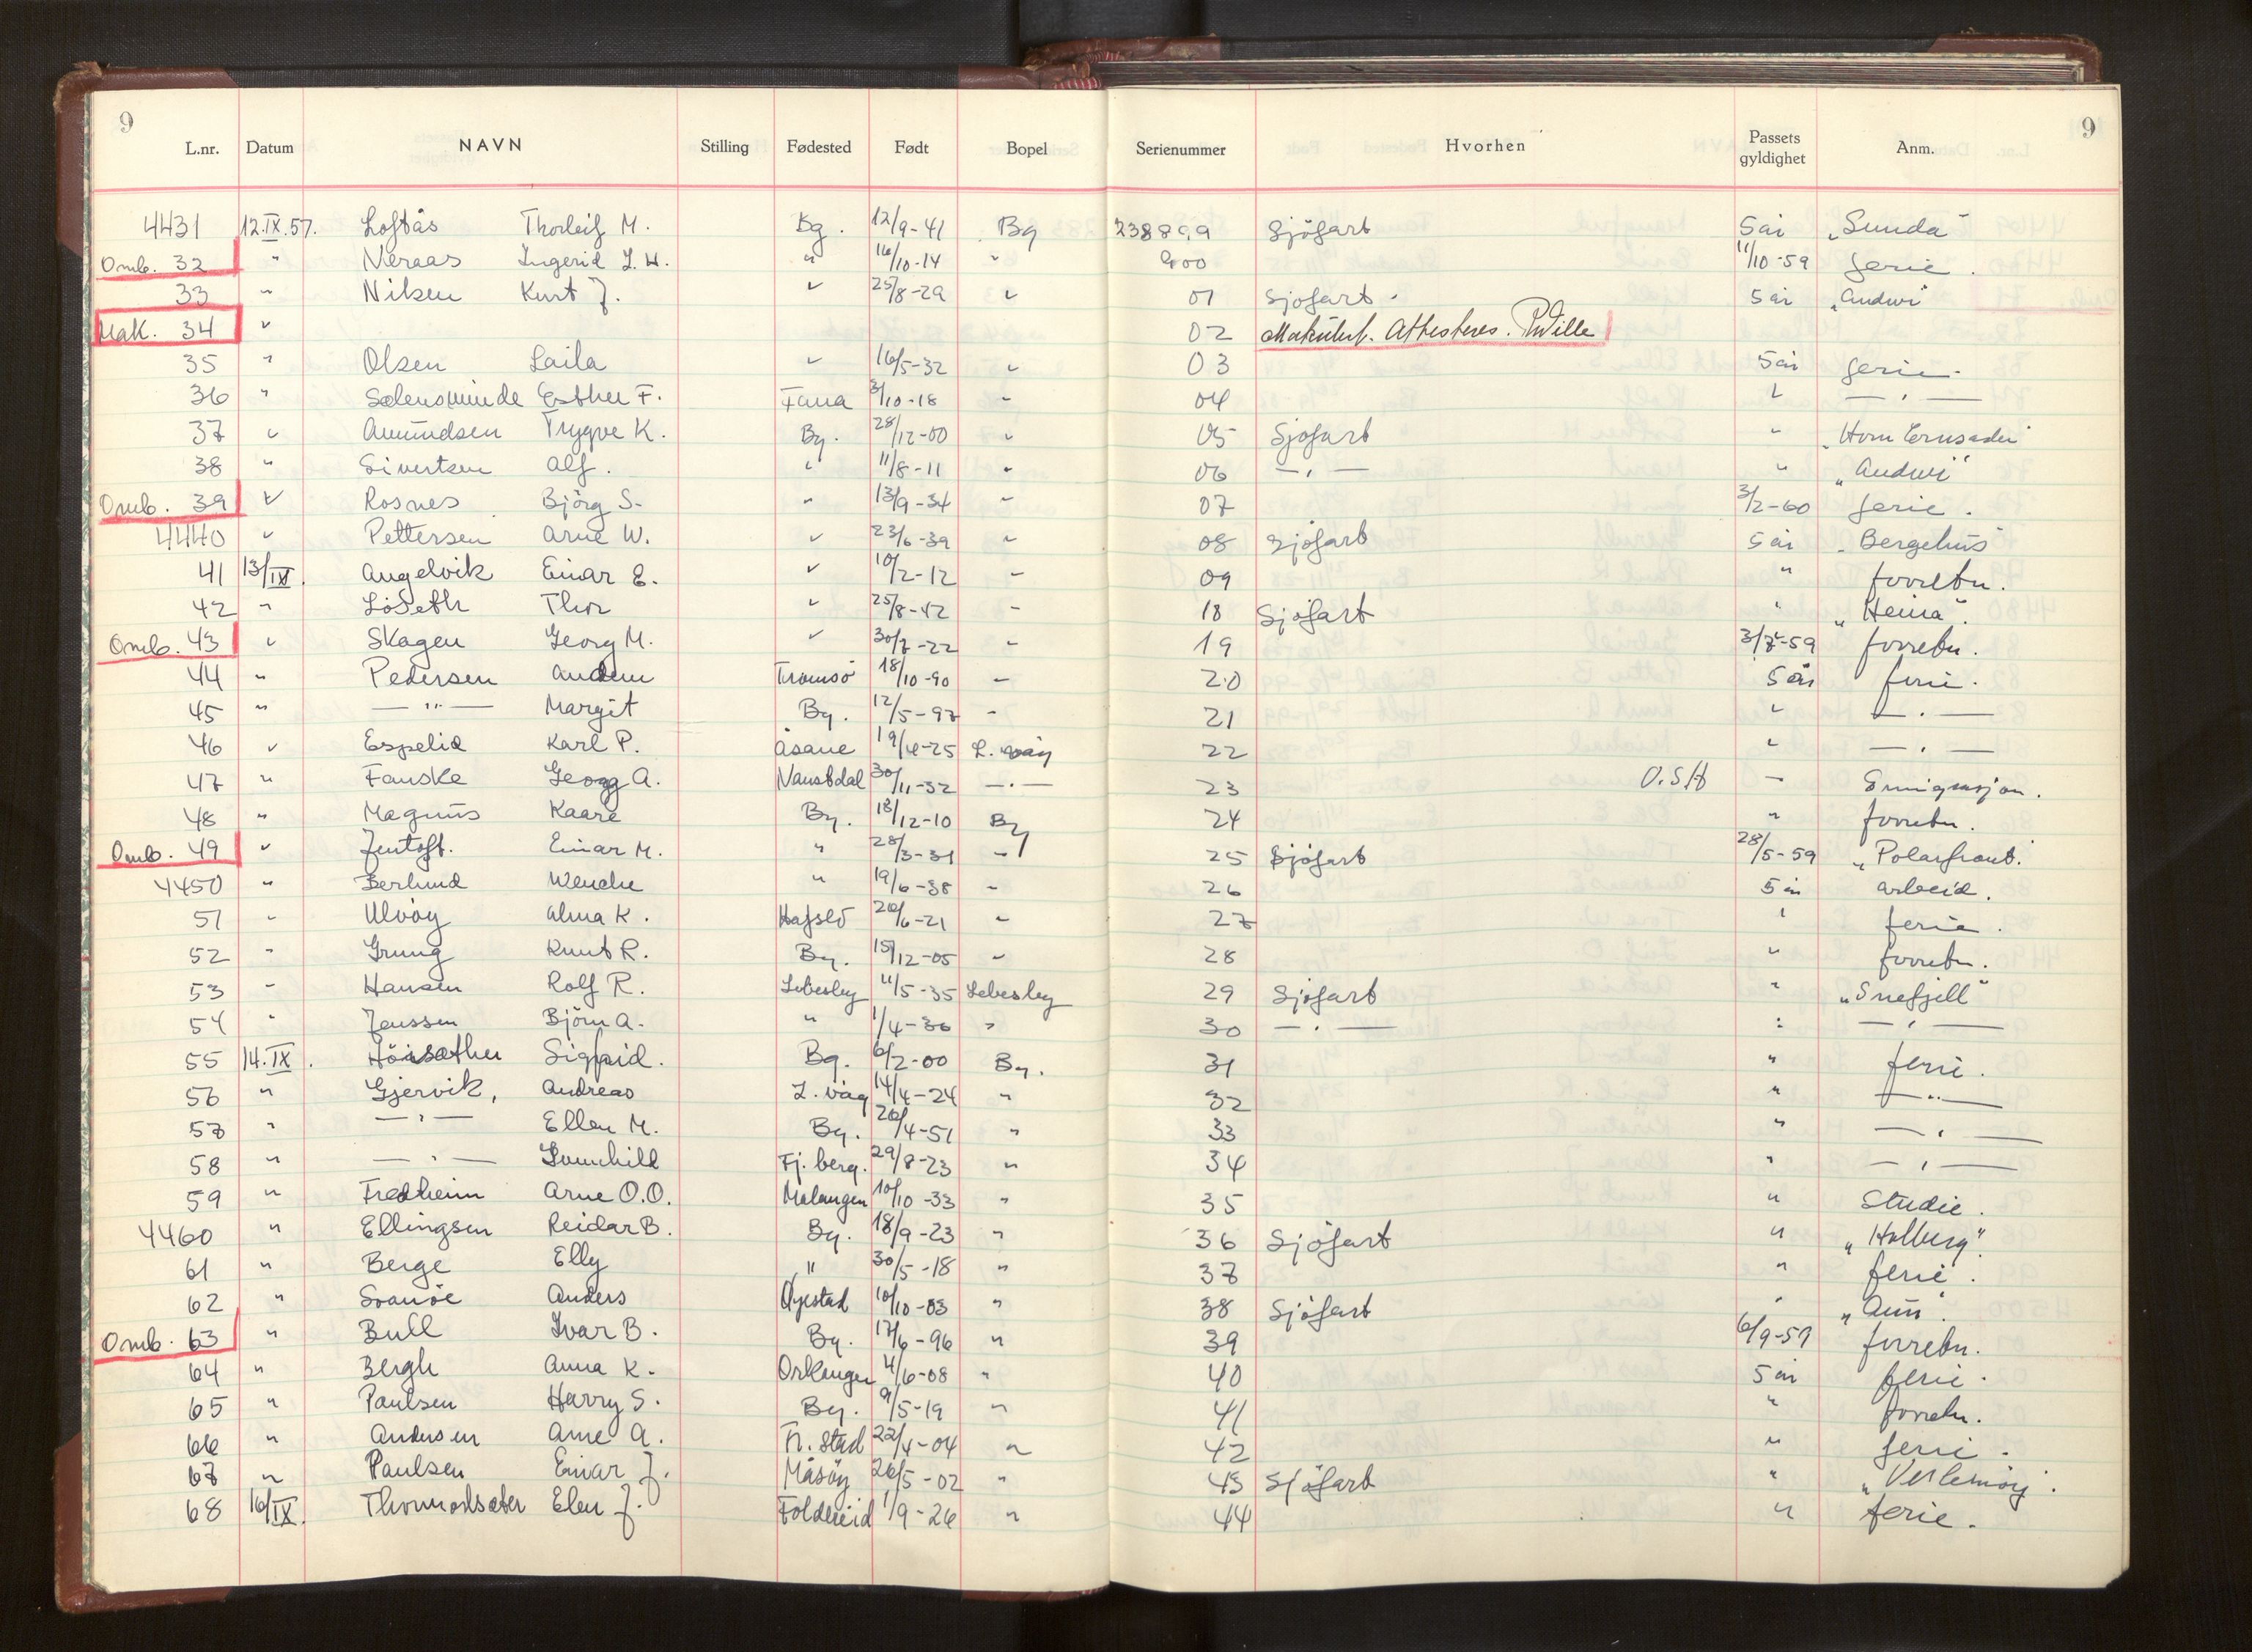 9 9
L.nr. Datum NAVN Stilling Fødested Født Bopel Serienummer Hvorhen Passets gyldighet Anm.
4431 12.IX.57. Loftås Thorleif M. Bg. 12/9-41 Bg 238899 Sjöfart 5 år "Sunda"
Omb. 32 " Neraas Ingerid L.H. " 16/10-14 " 900 11/10-59 ferie.
33 " Nilsen Kurt J. " 25/8-29 " 01 Sjöfart. 5 år "Andwi"
Mak. 34 " 02 Makulert. Attesteres. PWille
35 " Olsen Laila " 16/5-32 " 03 5 år ferie.
36 " Selensminde Esther F. Fana 3/10-18 " 04 " — " —
37 " Amundsen Trygve K. Bg. 28/12-00 " 05 Sjöfart " "Horn Crusader"
38 " Sivertsen Alf. " 11/8-11 " 06 — " — " "Andwi"
Omb. 39 " Rosnes Björg S. " 13/9-34 " 07 3/2-60 ferie.
4440 " Pettersen Arne W. " 23/6-39 " 08 Sjöfart 5 år "Bergehus"
41 13/IX. Angelvik Einar E. " 10/2-12 " 09 " forretn.
42 " Löseth Thor " 25/8-42 " 18 Sjöfart " "Heina".
Omb. 43 " Skagen Georg M. " 30/7-22 " 19 3/7-59 forretn.
44 " Pedersen Anders Tromsö 18/10-90 " 20 5 år ferie.
45 " — " — Margit Bg. 12/5-97 " 21 " — " —
46 " Espelid Karl P. Åsane 19/4-25 L. våg 22 " — " —
47 " Fauske Georg A. Naustdal 30/11-32 — " — 23 U.S.A " Emigrasjon.
48 " Magnus Kaare Bg. 18/12-10 Bg 24 " forretn.
Omb. 49 " Jentoft. Einar M. " 28/3-31 " 25 Sjöfart 28/5-59 "Polarfront."
4450 " Berlund Wenche " 19/6-38 " 26 5 år arbeid.
51 " Ulvöy Alma K. Hafslo 20/6-21 " 27 " ferie.
52 " Grung Knut R. Bg. 15/12-05 " 28 " forretn.
53 " Hansen Rolf R. Lebesby 11/5-35 Lebesby 29 Sjöfart " "Snefjell"
54 " Jenssen Björn A. " 1/4-36 " 30 — " — " — " —
55 14.IX. Höisæther Sigfrid. Bg. 6/2-00 Bg. 31 " ferie.
56 " Gjervik, Andreas L. våg 14/4-24 " 32 " — " —
57 " — " — Ellen M. Bg. 26/4-51 " 33 " — " —
58 " — " — Gunnhild Fj. berg. 29/8-23 " 34 " — " —
59 " Fredheim Arne O.O. Malangen 10/10-33 " 35 " Studie.
4460 " Ellingsen Reidar B. Bg. 18/9-23 " 36 Sjöfart " "Holberg".
61 " Berge Elly " 30/5-18 " 37 " ferie.
62 " Svanöe Anders Öyestad 10/10-03 " 38 Sjöfart " "Aun".
Omb. 63 " Bull Ivar B. Bg. 17/6-96 " 39 6/9-59 forretn.
64 " Bergh Anna K. Orkanger 4/6-08 " 40 5 år ferie.
65 " Paulsen Harry S. Bg. 9/5-19 " 41 " forretn.
66 " Andersen Arne A. Fr. stad 22/4-04 " 42 " ferie.
67 " Paulsen Einar J. Måsöy 26/5-02 " 43 Sjöfart " "Vestemöy".
68 16/IX. Thormodsæter Elen J. Foldereid 1/9-26 " 44 " ferie.